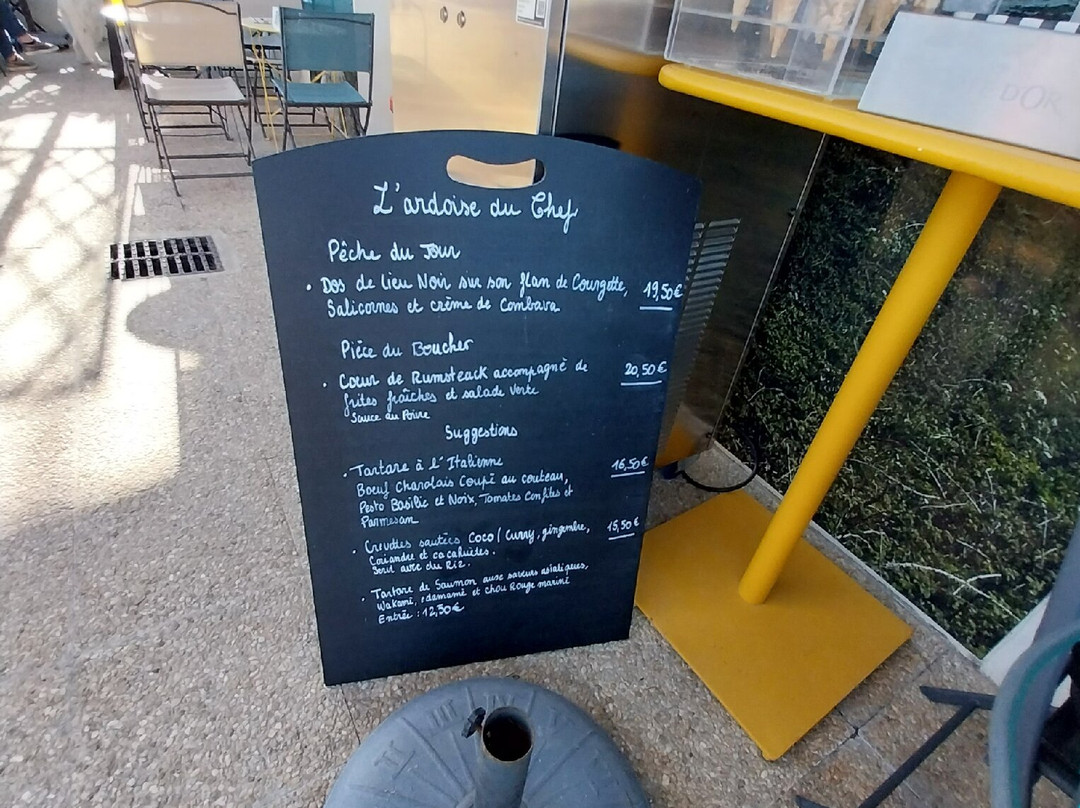 L'ardoise du Chef
Pêche du Jour
• Dos de lieu Noir sur son flan de Courgette, 19,50€
Salicornes et crème de Combava
Pièce du Boucher
• Coeur de Rumsteack accompagné de 20,50€
frites fraîches et salade verte
Sauce au Poivre
Suggestions
• Tartare à l'Italienne 16,50€
Boeuf Charolais Coupé au couteau,
Pesto Basilic et Noix, Tomates Confites et
Parmesan
• Crevettes sautées Coco / Curry, gingembre, 15,50€
Coriandre et cacahuètes.
Servi avec du Riz.
• Tartare de Saumon aux saveurs asiatiques,
Wakamé, edamamé et chou Rouge mariné
Entrée : 12,50€